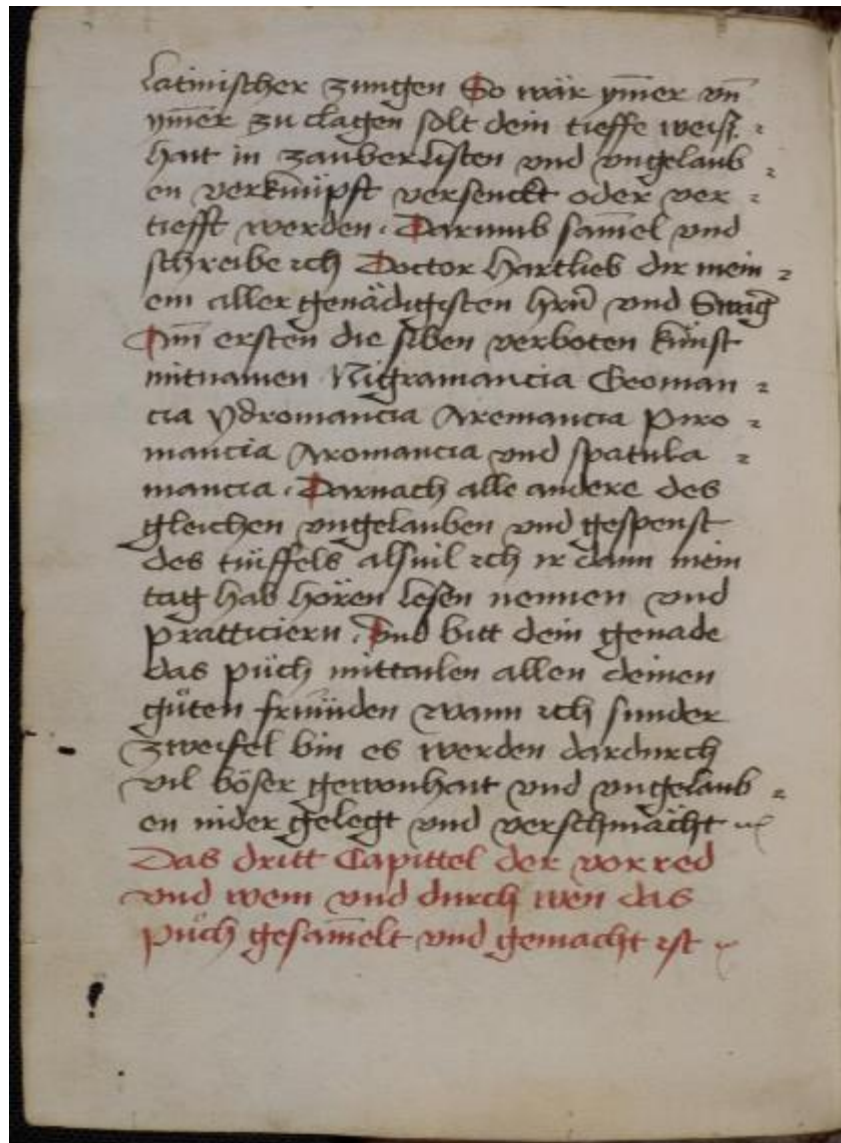 latinischer zungen So wär ym̄er vn̄
ym̄er zu clagen solt dein tieffe weiß=
hait in zauberlisten vnd vngelaub=
en verknüpft versenckt oder ver=
tiefft werden. Darumb sam̄el vnd
schreibe ich Doctor Hartlieb dir mein=
em aller genädigisten hrn̄ vnd
Am̄ ersten die siben verboten kunst
mitnamen Nigramancia Geoman=
cia ydromancia Aremancia piro=
mancia Aromancia vnd spatula=
mancia. Darnach alle andere des
gleichen vngelauben vnd gespenst
des tiüffels alsuil ich ir dann mein
tag hab hören lesen nennen vnd
practiciern. Und bitt dein genade
das püch mittailen allen deinen
güten friünden wann ich sunder
zweifel bin es werden dardurch
vil böser gewonhait vnd vngelaub=
en nider gelegt vnd verschmächt
Das dritt Capittel der vorred
vnd wem vnd durch wen das
püch gesam̄elt vnd gemacht ist